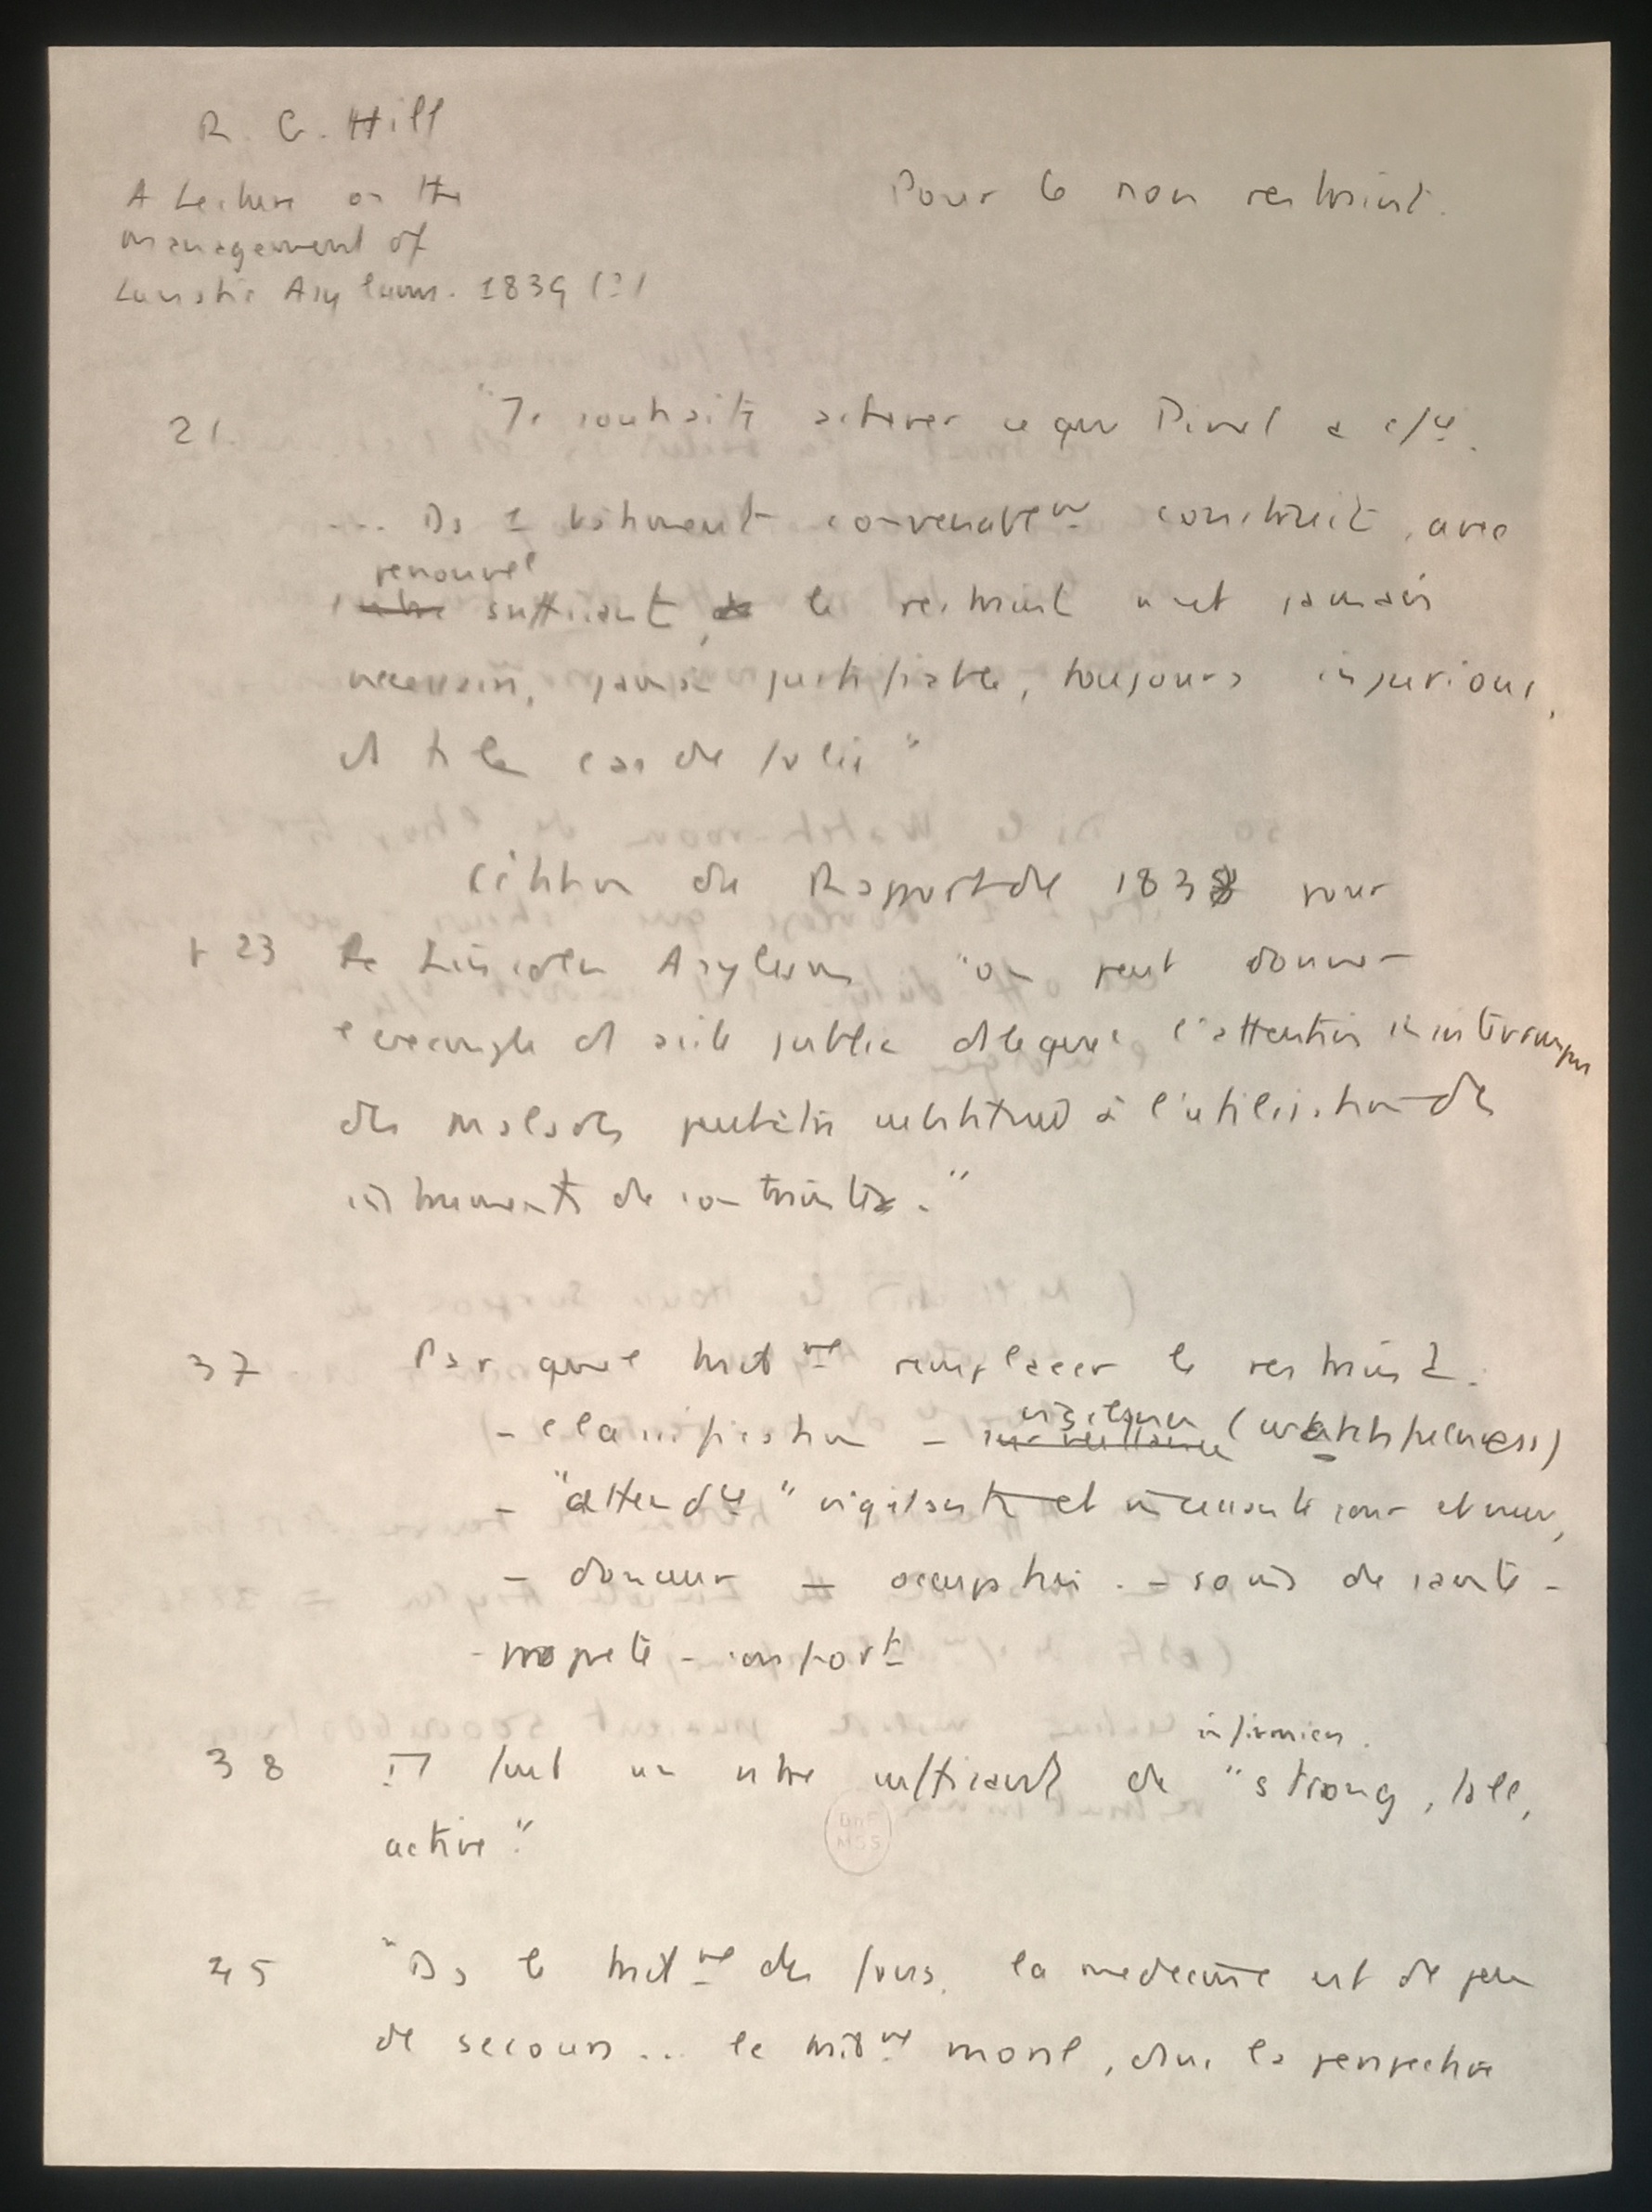 R. G. Hill
A Lecture on the
management of
Lunatic Asylums. 1839 (?)
Pour le non restraint.
21. "Je souhaite achever ce que Pinel a c/cé.
... Ds 1 bâtiment convenablemt construit, avec
personnel
suffisant, le restraint n'est jamais
nécessaire, jamais justifiable, toujours injurious,
ds ts les cas de folie"
Citation du Rapport de 1838 pour
+ 23 le Lincoln Asylum "on peut donner
l'exemple d'1 asile public dans lequel l'attention ininterrompue
des malades peut être substituée à l'utilisation des
instruments de contrainte."
37 Par quel traitmt remplacer le restraint.
- classification - surveillance vigilance (watchfulness)
- "attendce" vigilante et incessante jour et nuit,
- douceur - occupation. - soins de santé -
- propreté - confort
38 Il faut un nbre suffisant de infirmiers. "strong, tall,
active".
45 "Ds le traitmt des fous, la médecine est de peu
de secours... le traitmt moral, dans la perspective